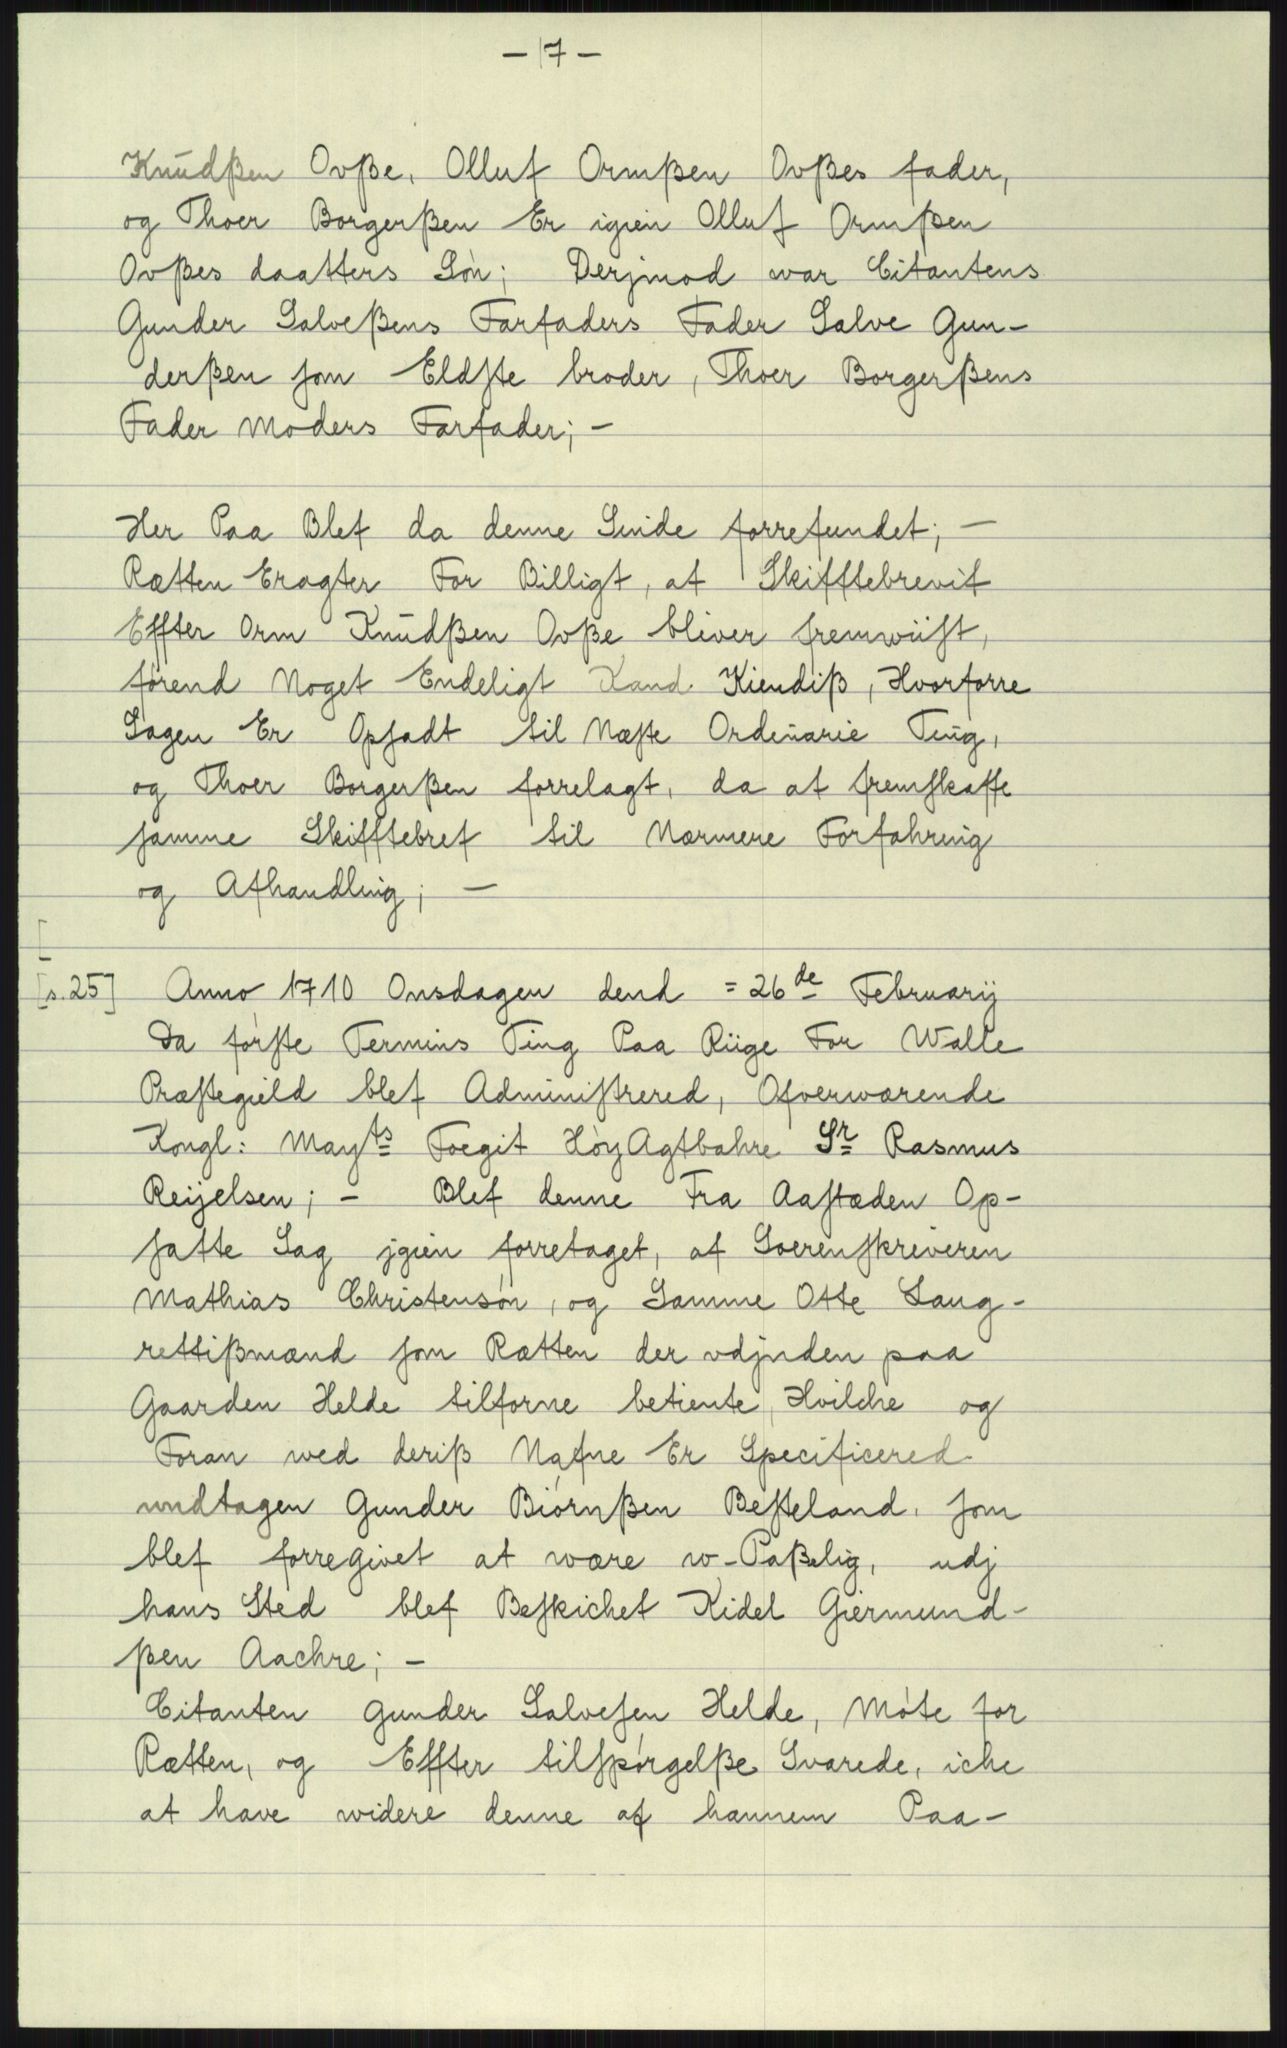 - 7 -
Knudßen Ovße, Olluf Ormßen Ovßes fader,
og Thoer Borgerßen Er igien Olluf Ormßen
Ovßes daatters Søn; Derjmod war Citantens
Gunder Salveßens Farfaders Fader Salve Gun-
derßen som Eldste broder, Thoer Borgerßens
Fader Moders Farfader; -
Her Paa Blef da denne Sinde forrefundet; -
Rætten Eragter For Billigt, at Skifftebrevit
Effter Orm Knudßen Ovße bliver fremwiist,
førend Noget Endeligt Kand Kiendiß, Hvorforre
Sagen Er Opsadt til Næste Ordinarie Ting,
og Thoer Borgerßen forrelagt, da at fremskaffe
samme Skifftebref til Nærmere Forfahring
og Afhandling; -
[
[s. 25] Anno 1710 Onsdagen dend = 26de Februarij
Da første Termins Ting Paa Riige For Walle
Præstegield blef Administrered, Ofverwærende
Kongl: Mayts Foegit HøyAgtbahre Sr Rasmus
Reijelsen; - Blef denne Fra Aastæden Op-
satte Sag jgien forretaget, af Soerenskriveren
Mathias Christensøn, og Samme Otte Laug-
rettißmænd som Rætten der vdjnden paa
Gaarden Helde tilforne betiente, Hvilche og
Foran wed deriß Nafne Er Specificered
undtagen Gunder Biørnßen Besteland, som
blef forregivet at være w-Paßelig, udj
hans Sted blef Beskichet Kidel Giermund-
ßen Aachre; -
Citanten Gunder Salvesen Helde, Møte for
Rætten, og Effter tilspørgelße Svarede, iche
at have widere denne af hannem Paa-